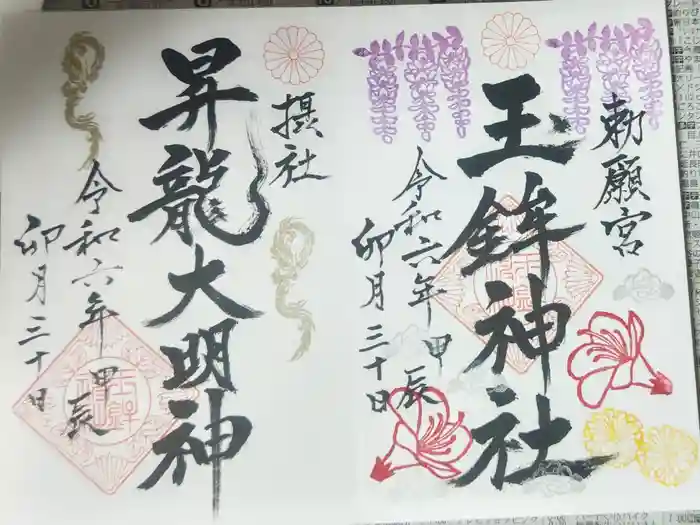 勅願宮
玉鉾神社
令和六年甲辰
卯月三十日
摂社
昇龍大明神
令和六年甲辰
卯月三十日